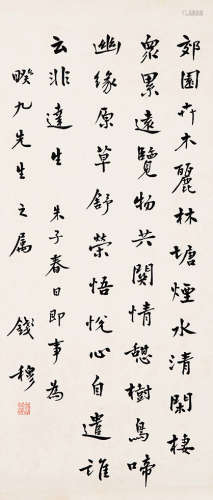 郊園卉木麗林塘煙水清閑棲
眾累遠覽物共關情憩樹鳥啼
幽緣原草舒榮悟悅心自遣誰
云非達生 朱子春日即事為
暌九先生之屬 錢穆